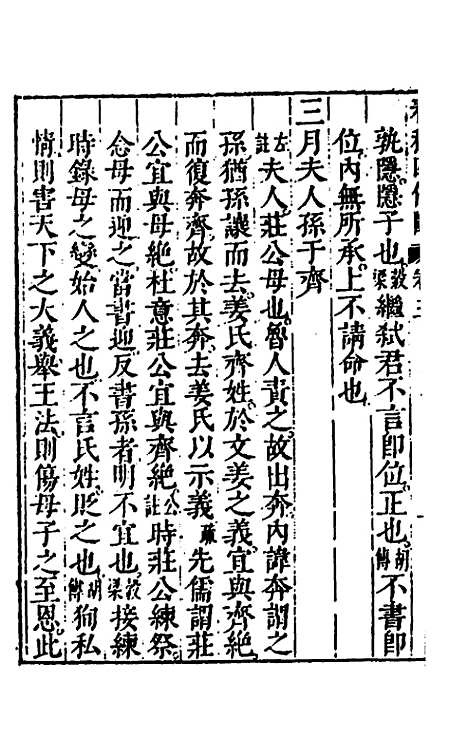 孰隱隱子也穀梁繼弑君不言即位正也胡傳不書即
位內無所承上不請命也
三月夫人孫于齊
左註夫人莊公母也魯人責之故出奔內諱奔謂之
孫猶孫讓而去姜氏齊姓於文姜之義宜與齊絕
而復奔齊故於其奔去姜氏以示義疏先儒謂莊
公宜與母絕杜意莊公宜與齊絕公註時莊公練祭
念母而迎之當書迎反書孫者明不宜也穀梁接練
時錄母之變始人之也不言氏姓貶之也胡傳狥私
情則害天下之大義舉王法則傷母子之至恩此